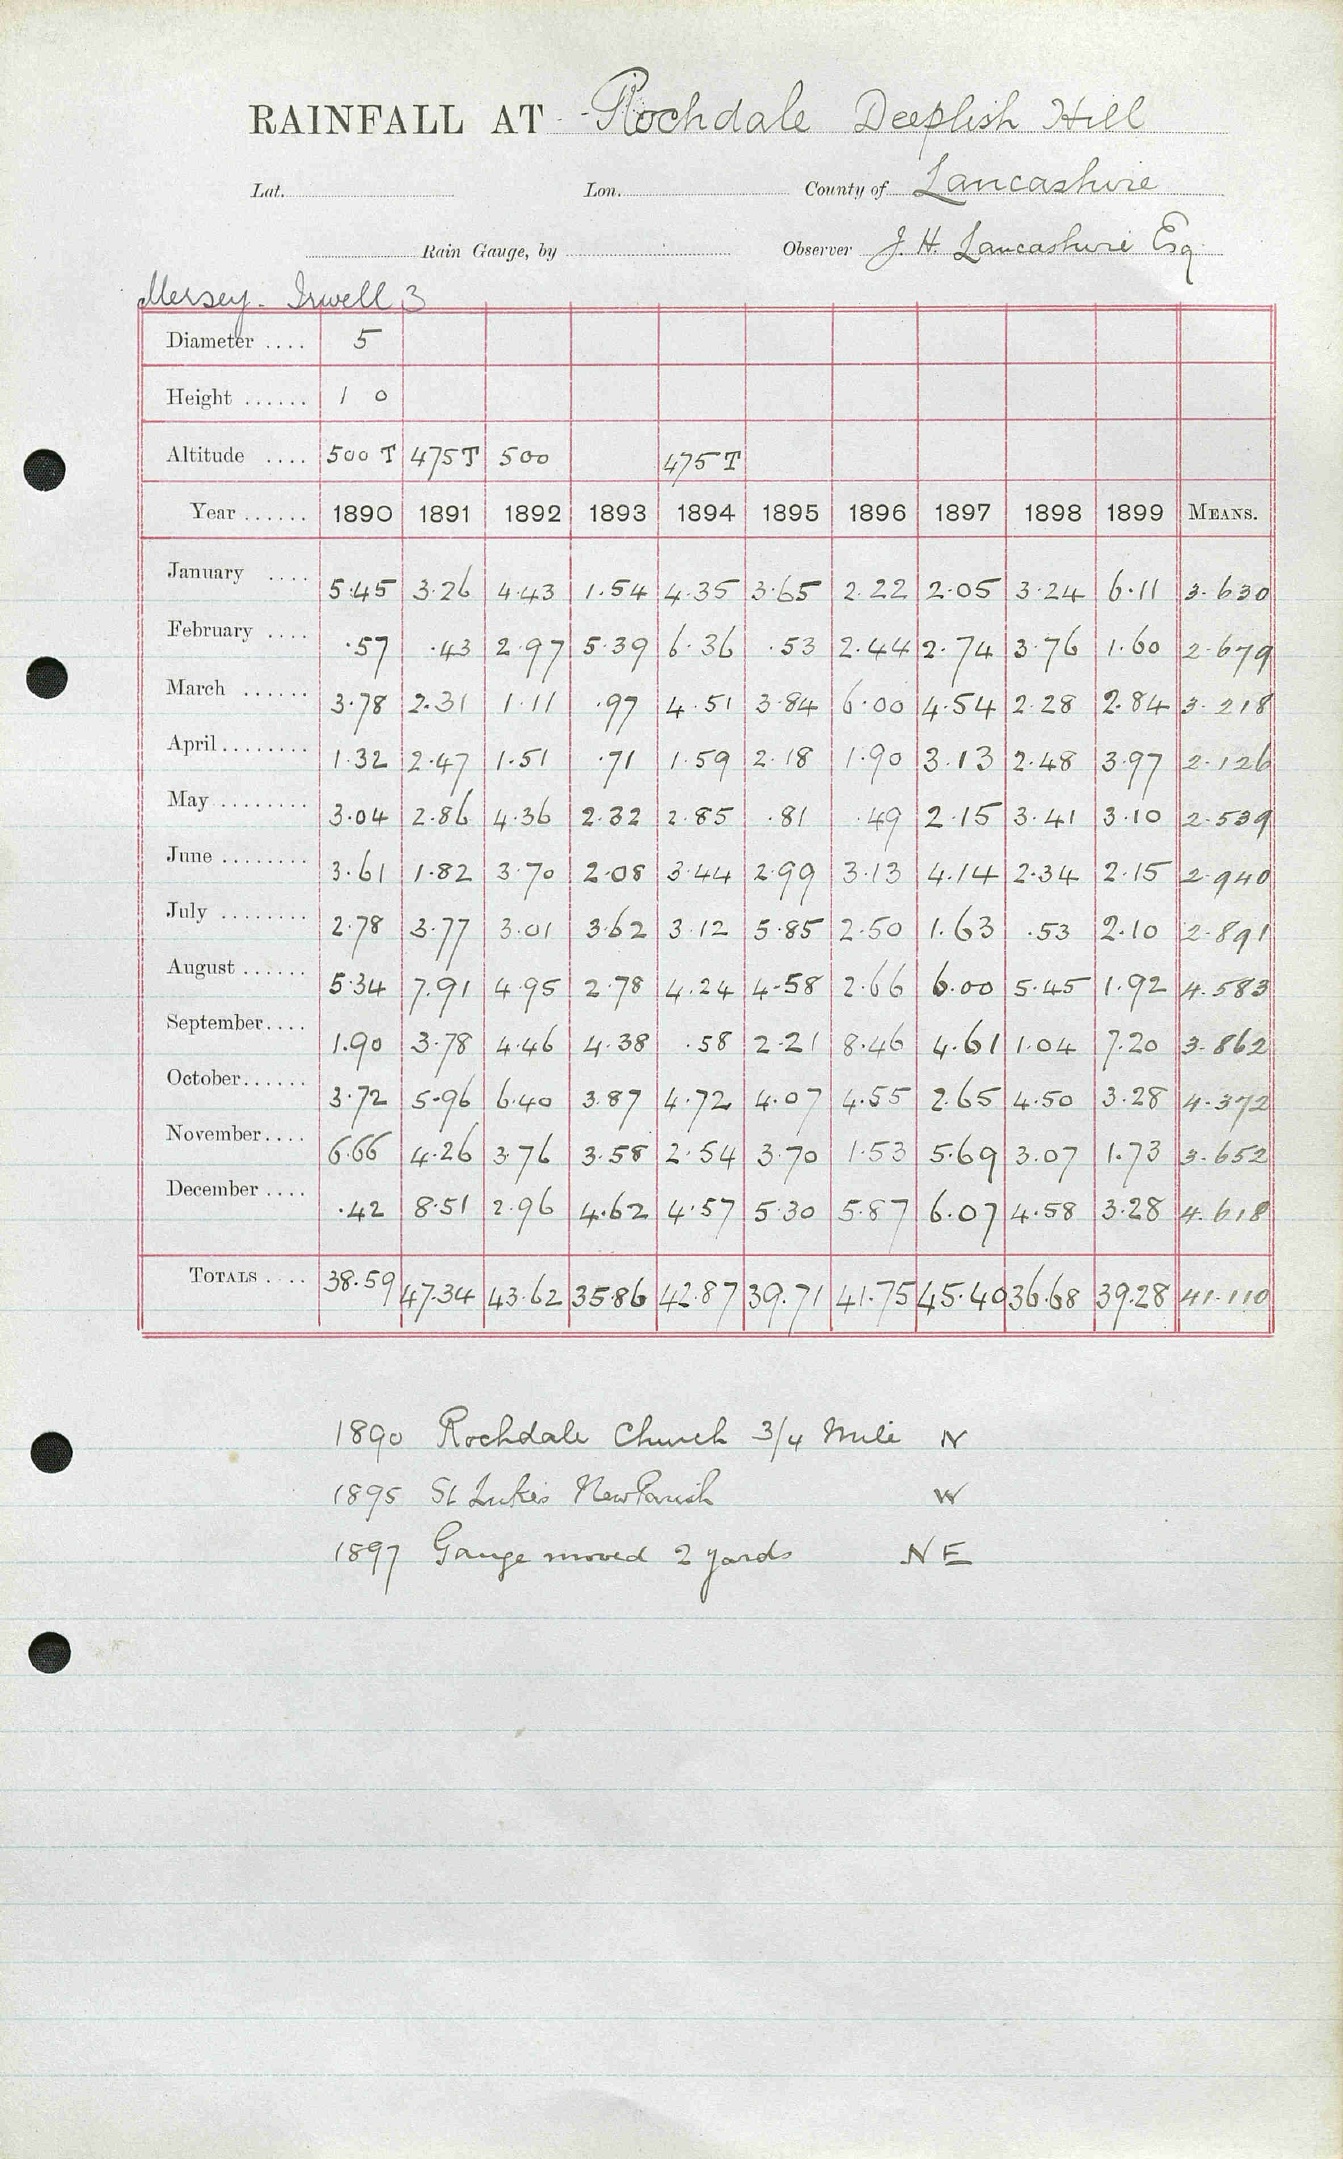 RAINFALL AT Rochdale Deeplish Hill
Lat. Lon. County of Lancashire
Rain Gauge, by Observer J. H. Lancashire Esq
Mersey. Irwell 3
Diameter .... 5
Height ...... 1 0
Altitude .... 500 T 475T 500 475T
Year ...... 1890 1891 1892 1893 1894 1895 1896 1897 1898 1899 MEANS.
January .... 5.45 3.26 4.43 1.54 4.35 3.65 2.22 2.05 3.24 6.11 3.630
February .... .57 .43 2.97 5.39 6.36 .53 2.44 2.74 3.76 1.60 2.679
March ...... 3.78 2.31 1.11 .97 4.51 3.84 6.00 4.54 2.28 2.84 3.218
April........ 1.32 2.47 1.51 .71 1.59 2.18 1.90 3.13 2.48 3.97 2.126
May ........ 3.04 2.86 4.36 2.32 2.85 .81 .49 2.15 3.41 3.10 2.539
June ........ 3.61 1.82 3.70 2.08 3.44 2.99 3.13 4.14 2.34 2.15 2.940
July ........ 2.78 3.77 3.01 3.62 3.12 5.85 2.50 1.63 .53 2.10 2.891
August ...... 5.34 7.91 4.95 2.78 4.24 4.58 2.66 6.00 5.45 1.92 4.583
September.... 1.90 3.78 4.46 4.38 .58 2.21 8.46 4.61 1.04 7.20 3.862
October...... 3.72 5.96 6.40 3.87 4.72 4.07 4.55 2.65 4.50 3.28 4.372
November.... 6.66 4.26 3.76 3.58 2.54 3.70 1.53 5.69 3.07 1.73 3.652
December .... .42 8.51 2.96 4.62 4.57 5.30 5.87 6.07 4.58 3.28 4.618
TOTALS .... 38.59 47.34 43.62 35.86 42.87 39.71 41.75 45.40 36.68 39.28 41.110
1890 Rochdale Church 3/4 Mile N
1895 St Lukes New Parish W
1897 Gauge moved 2 yards NE